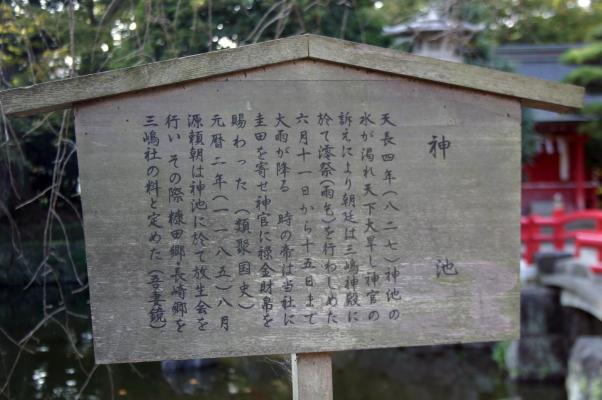 神池
天長四年(八二七)神池の
水が涸れ天下大旱し神官の
訴えにより朝廷は三嶋神殿に
於て澪祭(雨乞)を行わしめた
六月十一日から十五日まで
大雨が降る 時の帝は当社に
圭田を寄せ神官に禄金財帛を
賜わった (類聚国史)
元暦二年(一一八五)八月
源頼朝は神池に於て放生会を
行い その際 糠田郷・長崎郷を
三嶋社の料と定めた(吾妻鏡)